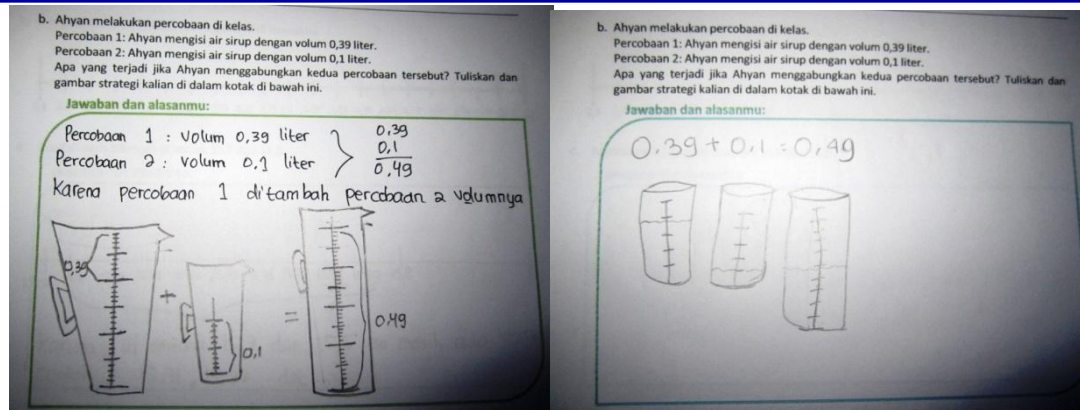 b. Ahyan melakukan percobaan di kelas.
Percobaan 1: Ahyan mengisi air sirup dengan volum 0,39 liter.
Percobaan 2: Ahyan mengisi air sirup dengan volum 0,1 liter.
Apa yang terjadi jika Ahyan menggabungkan kedua percobaan tersebut? Tuliskan dan
gambar strategi kalian di dalam kotak di bawah ini.
Jawaban dan alasanmu:
Percobaan 1 : Volum 0,39 liter
Percobaan 2 : Volum 0,1 liter
0,39
0,1
0,49
Karena percobaan 1 ditambah percobaan 2 volumnya
0,39
+
0,1
=
0,49
b. Ahyan melakukan percobaan di kelas.
Percobaan 1: Ahyan mengisi air sirup dengan volum 0,39 liter.
Percobaan 2: Ahyan mengisi air sirup dengan volum 0,1 liter.
Apa yang terjadi jika Ahyan menggabungkan kedua percobaan tersebut? Tuliskan dan
gambar strategi kalian di dalam kotak di bawah ini.
Jawaban dan alasanmu:
0,39 + 0,1 = 0,49